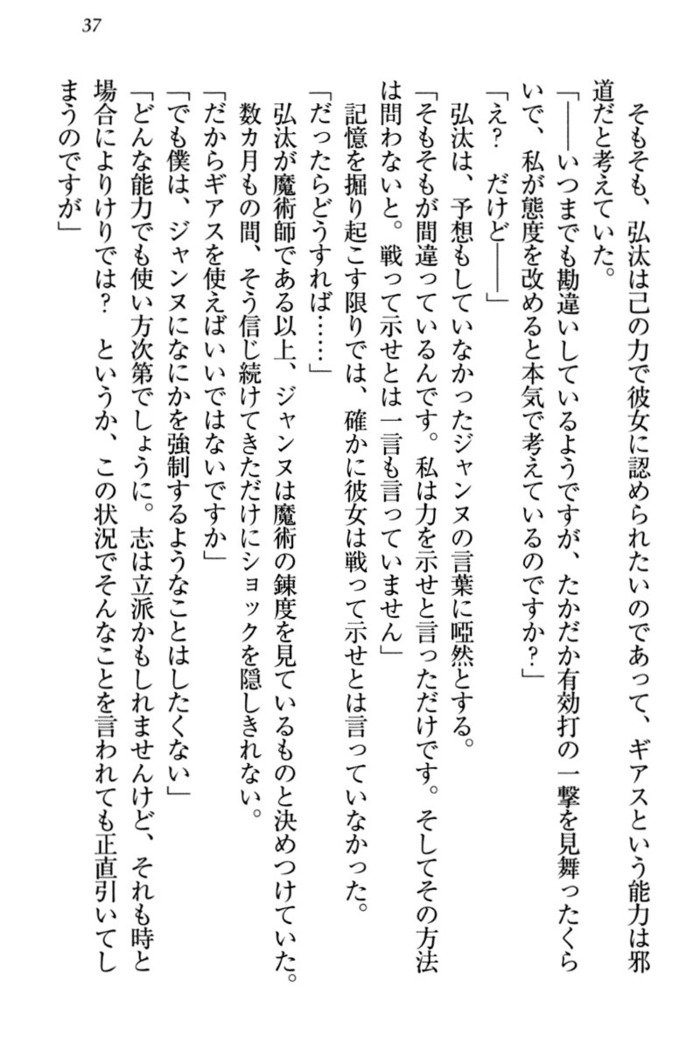 37
そもそも、弘汰は己の力で彼女に認められたいのであって、ギアスという能力は邪
道だと考えていた。
「――いつまでも勘違いしているようですが、たかだか有効打の一撃を見舞ったくら
いで、私が態度を改めると本気で考えているのですか？」
「え？　だけど――」
弘汰は、予想もしていなかったジャンヌの言葉に啞然とする。
「そもそもが間違っているんです。私は力を示せと言っただけです。そしてその方法
は問わないと。戦って示せとは一言も言っていません」
記憶を掘り起こす限りでは、確かに彼女は戦って示せとは言っていなかった。
「だったらどうすれば……」
弘汰が魔術師である以上、ジャンヌは魔術の錬度を見ているものと決めつけていた。
数カ月もの間、そう信じ続けてきただけにショックを隠しきれない。
「だからギアスを使えばいいではないですか」
「でも僕は、ジャンヌになにかを強制するようなことはしたくない」
「どんな能力でも使い方次第でしょうに。志は立派かもしれませんけど、それも時と
場合によりけりでは？　というか、この状況でそんなことを言われても正直引いてし
まうのですが」